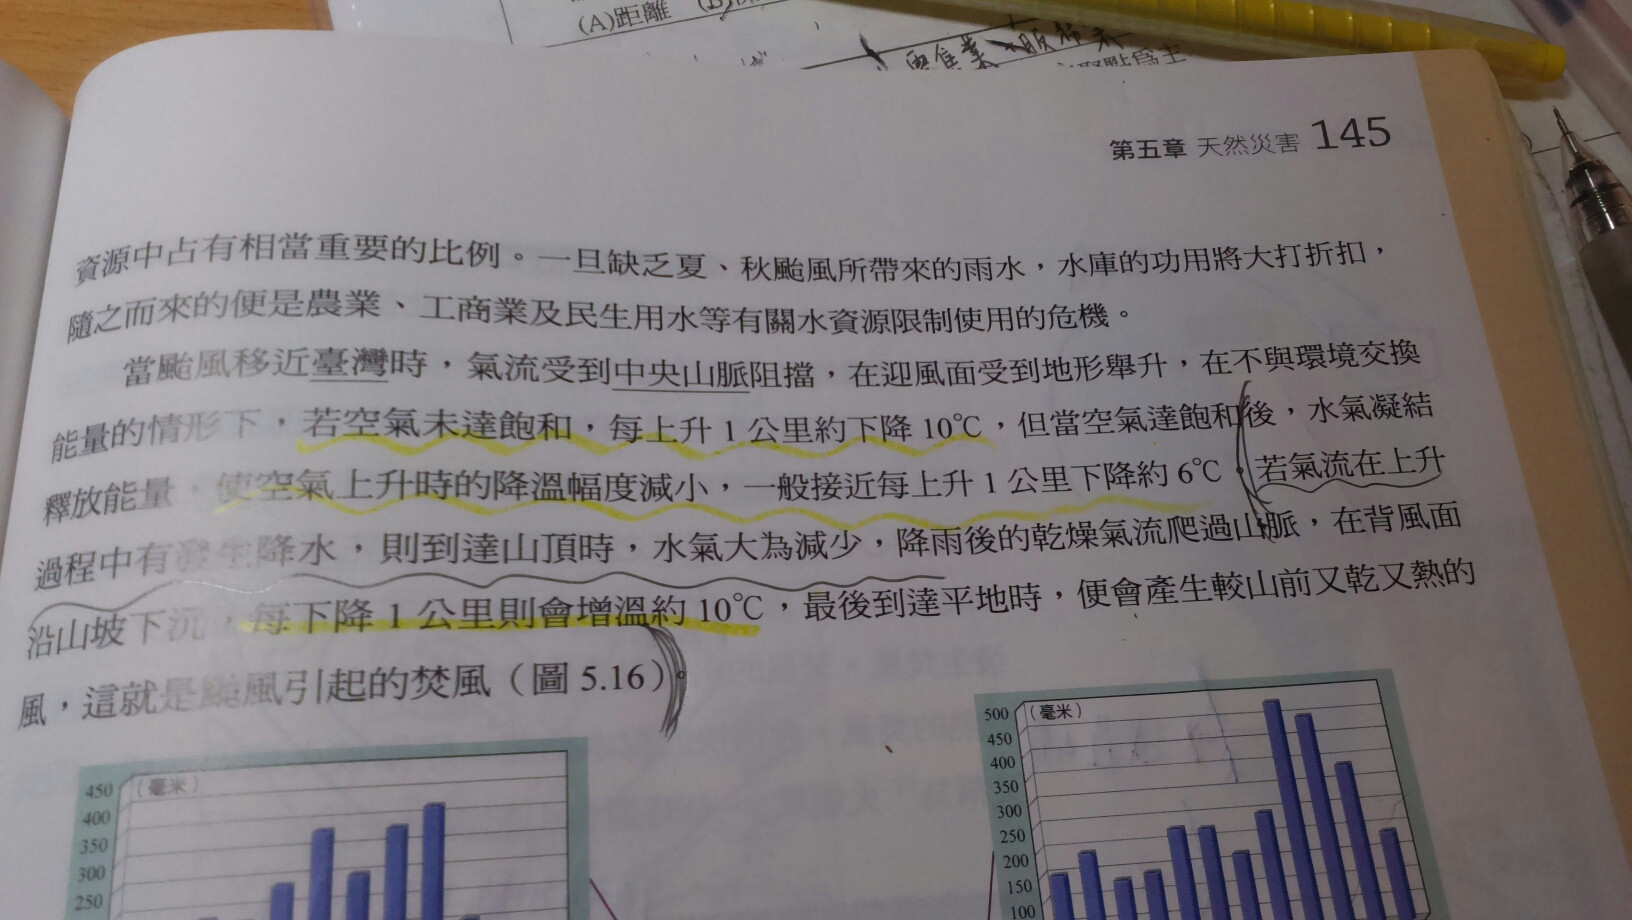 (A)距離
第五章 天然災害 145
資源中占有相當重要的比例。一旦缺乏夏、秋颱風所帶來的雨水，水庫的功用將大打折扣，
隨之而來的便是農業、工商業及民生用水等有關水資源限制使用的危機。
當颱風移近臺灣時，氣流受到中央山脈阻擋，在迎風面受到地形舉升，在不與環境交換
能量的情形下，若空氣未達飽和，每上升1公里約下降10℃，但當空氣達飽和後，水氣凝結
釋放能量，使空氣上升時的降溫幅度減小，一般接近每上升1公里下降約6℃。若氣流在上升
過程中有發生降水，則到達山頂時，水氣大為減少，降雨後的乾燥氣流爬過山脈，在背風面
沿山坡下沉，每下降1公里則會增溫約10℃，最後到達平地時，便會產生較山前又乾又熱的
風，這就是颱風引起的焚風（圖5.16）。
500
（毫米）
450
400
350
300
250
200
150
100
450
（毫米）
400
350
300
250